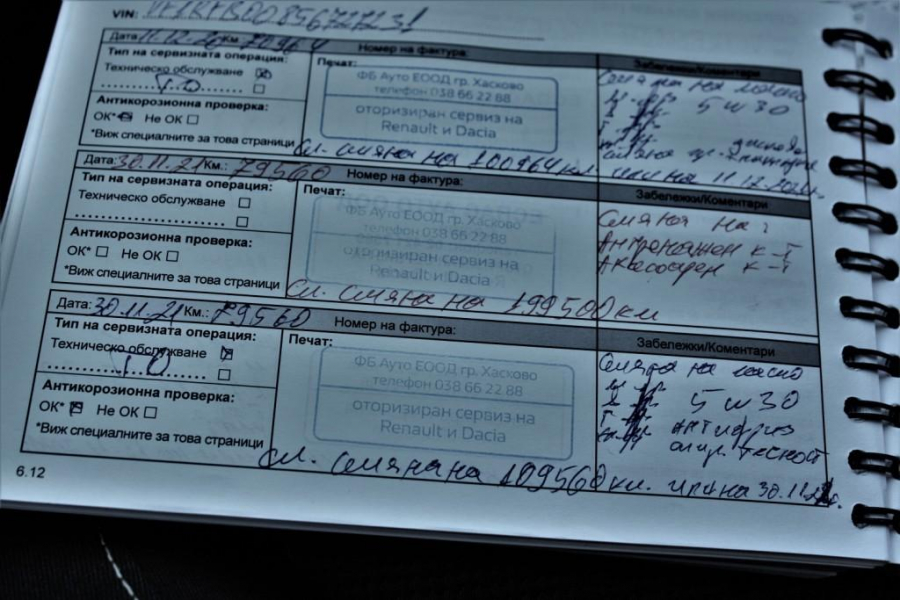 VIN:
Дата: 11.12.20 Км. 70964 Номер на фактура:
Тип на сервизната операция:
Техническо обслужване
Т.О
Антикорозионна проверка:
ОК* Не ОК
*Виж специалните за това страници
Печат:
ФБ Ауто ЕООД гр. Хасково
телефон 038 66 22 88
оторизиран сервиз на
Renault и Dacia
Забележки/Коментари
5 w 30
сл. смяна на 100964 км
Дата: 30.11.21 Км.: 79560 Номер на фактура:
Тип на сервизната операция:
Техническо обслужване
Антикорозионна проверка:
ОК* Не ОК
*Виж специалните за това страници
Печат:
ФБ Ауто ЕООД гр. Хасково
телефон 038 66 22 88
оторизиран сервиз на
Renault и Dacia
Забележки/Коментари
Смяна на:
Ангренажен к-т
Аксесоарен к-т
Сл. смяна на 199500 км
Дата: 30.11.21 Км.: 79560 Номер на фактура:
Тип на сервизната операция:
Техническо обслужване
Т.О
Антикорозионна проверка:
ОК* Не ОК
*Виж специалните за това страници
Печат:
ФБ Ауто ЕООД гр. Хасково
телефон 038 66 22 88
оторизиран сервиз на
Renault и Dacia
Забележки/Коментари
Смяна на масло
5 w 30
Антифриз
сл. смяна на 109560 км. или на
6.12